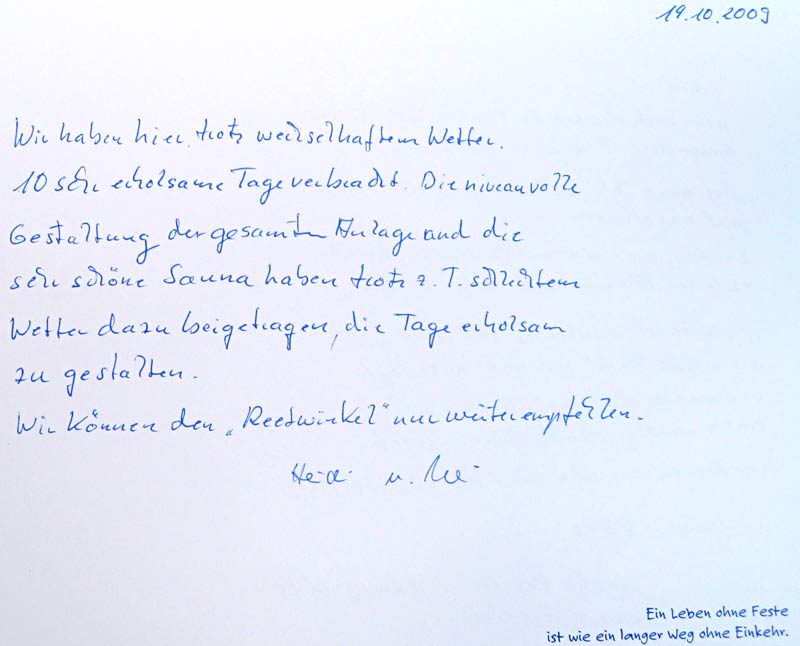 19.10.2009
Wir haben hier, trotz wechselhaftem Wetter.
10 sehr erholsame Tage verbracht. Die niveauvolle
Gestaltung der gesamten Anlage und die
sehr schöne Sauna haben trotz z. T. schlechtem
Wetter dazu beigetragen, die Tage erholsam
zu gestalten.
Wir können den „Reetwinkel" nur weiterempfehlen.
u.
Ein Leben ohne Feste
ist wie ein langer Weg ohne Einkehr.